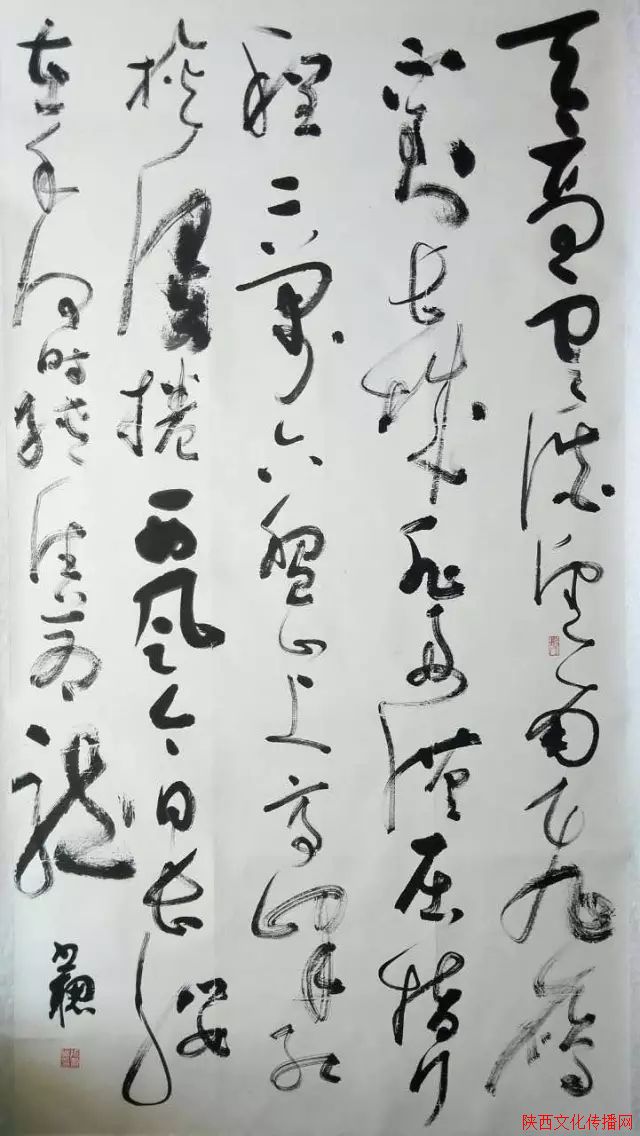 天高雲淡望断南飞雁
不到长城非好漢屈指行
程二萬六盤山上高峰红
旗漫捲西風今日长缨
在手何时缚住苍龍
陕西文化传播网